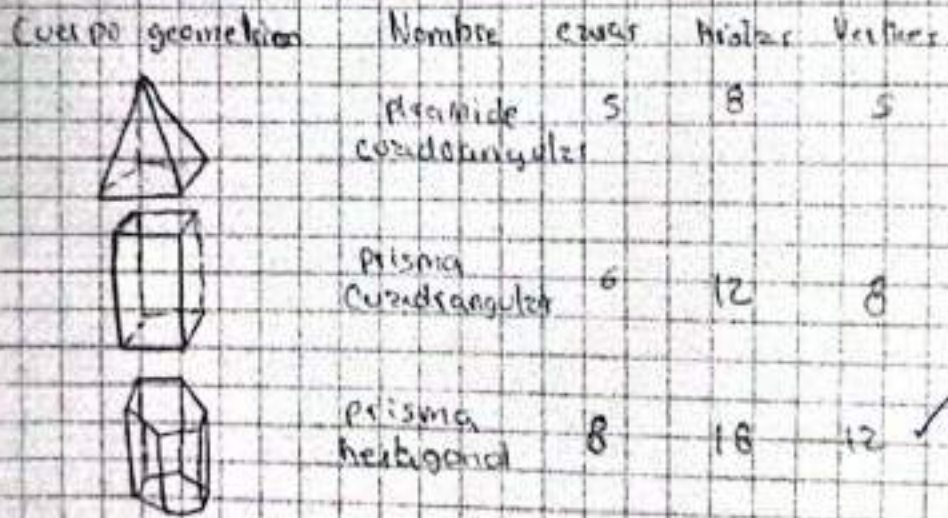 Cuerpo geometrico Nombre caras Aristas Vertices
piramide 5 8 5
cuadrangular
prisma
cuadrangular 6 12 8
prisma
hexagonal 8 18 12